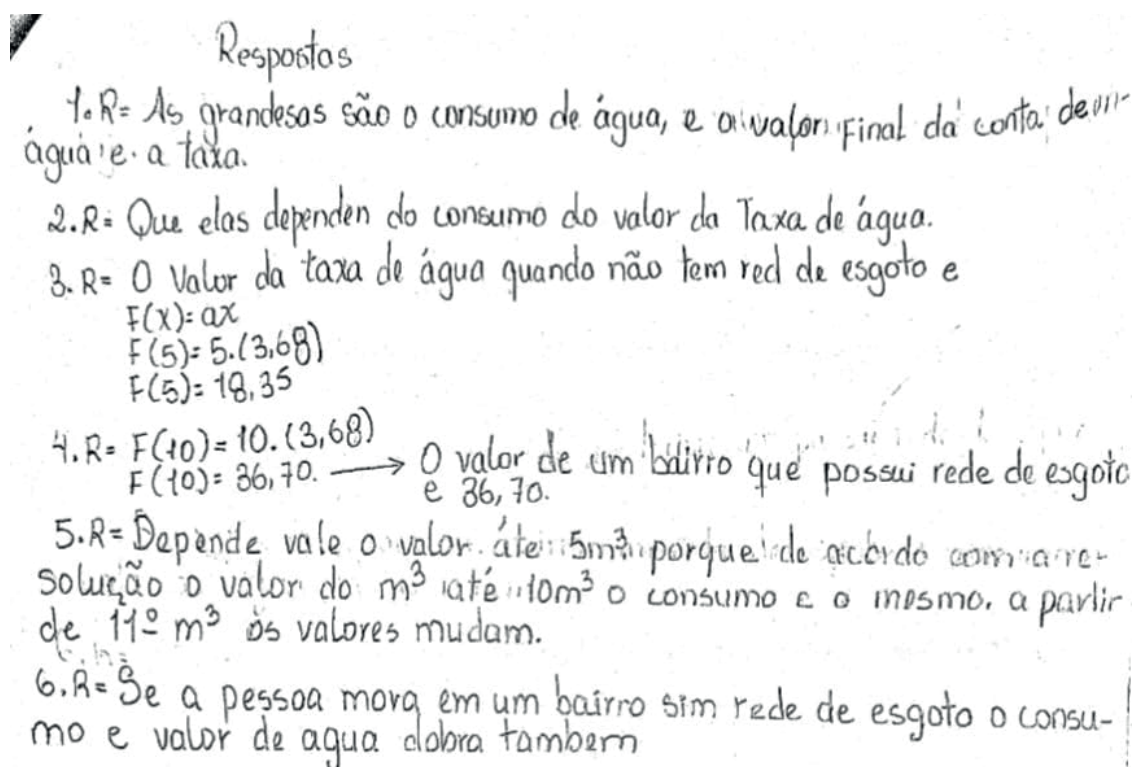 Respostas
1. R= As grandesas são o consumo de água, e o valor Final da conta de
água e a taxa.
2. R= Que elas dependen do consumo do valor da Taxa de água.
3. R= O Valor da taxa de água quando não tem red de esgoto e
F(x)= ax
F(5)= 5.(3,68)
F(5)= 18,35
4. R= F(10)= 10.(3,68)
F(10)= 36,70. → O valor de um bairro que possui rede de esgoto
e 36,70.
5. R= Depende vale o valor áte 5m³ porque de acordo com a re-
solução o valor do m³ até 10m³ o consumo e o mesmo. a partir
de 11º m³ os valores mudam.
6. R= Se a pessoa mora em um bairro sim rede de esgoto o consu-
mo e valor de agua dobra tambem